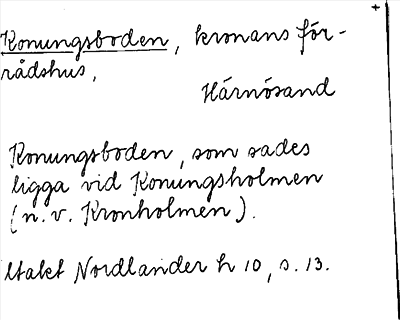 Konungsboden, kronans för-
rådshus,
Härnösand
Konungsboden, som sades
ligga vid Konungsholmen
(n. v. Kronholmen).
Nordlander h 10, s. 13.